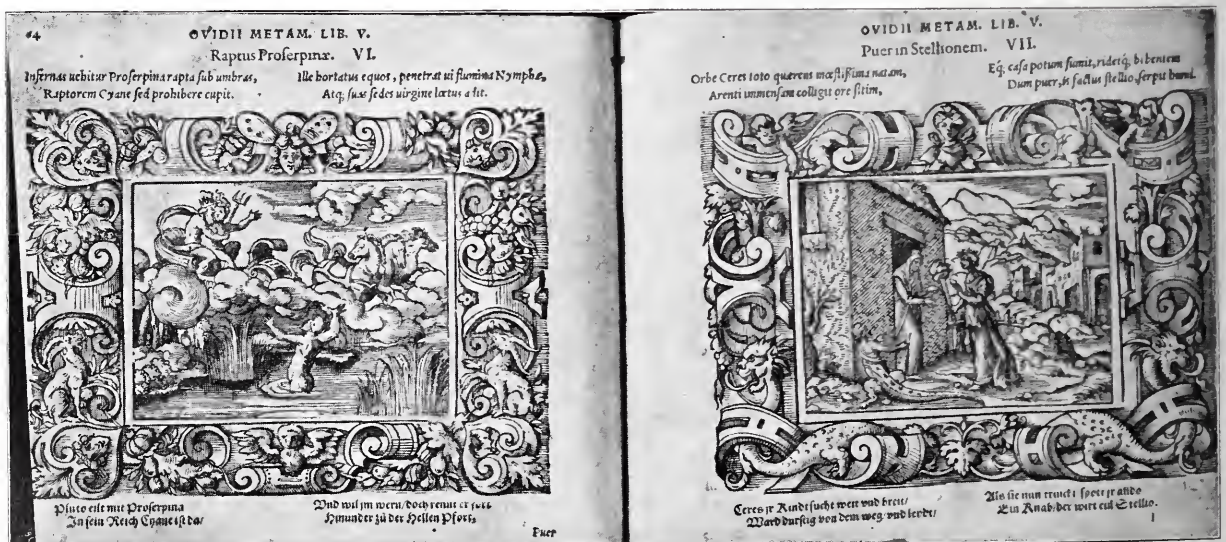 64
OVIDII METAM. LIB. V.
Raptus Proserpinæ. VI.
Infernas uehitur Proserpina rapta sub umbras,
Raptorem Cyane sed prohibere cupit.
Ille hortatus equos, penetrat ui flumina Nymphæ,
Atq; suæ sedes uirgine lætus adit.
Pluto eilt mit Proserpina
In sein Reich Cyane ist da/
Vnd wil jm wern/doch rennt er fort
Hinunder zů der Hellen Pfort,
Puer
OVIDII METAM. LIB. V.
Puer in Stellionem. VII.
Orbe Ceres toto quærens mœstissima natam,
Arenti immensam colligit ore sitim,
Eq; casa potum sumit, ridetq; bibentem
Dum puer, is factus stellio serpit humi.
Ceres jr Kindt sucht weit vnd breit/
Ward durstig von dem weg vnd
Als sie nun trinckt spott jr
Ein Knab/der wirt ein Stellio.